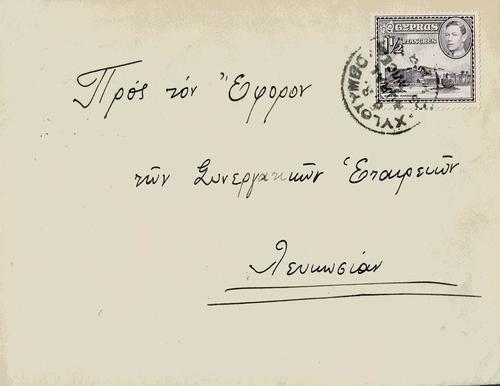 CYPRUS
1½
PIASTRES
XYLOTYMBO
Πρός τόν Ἔφορον
τῶν Συνεργατικῶν Ἑταιρειῶν
Λευκωσίαν